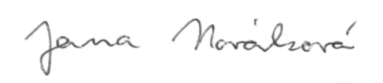 Jana Nováková